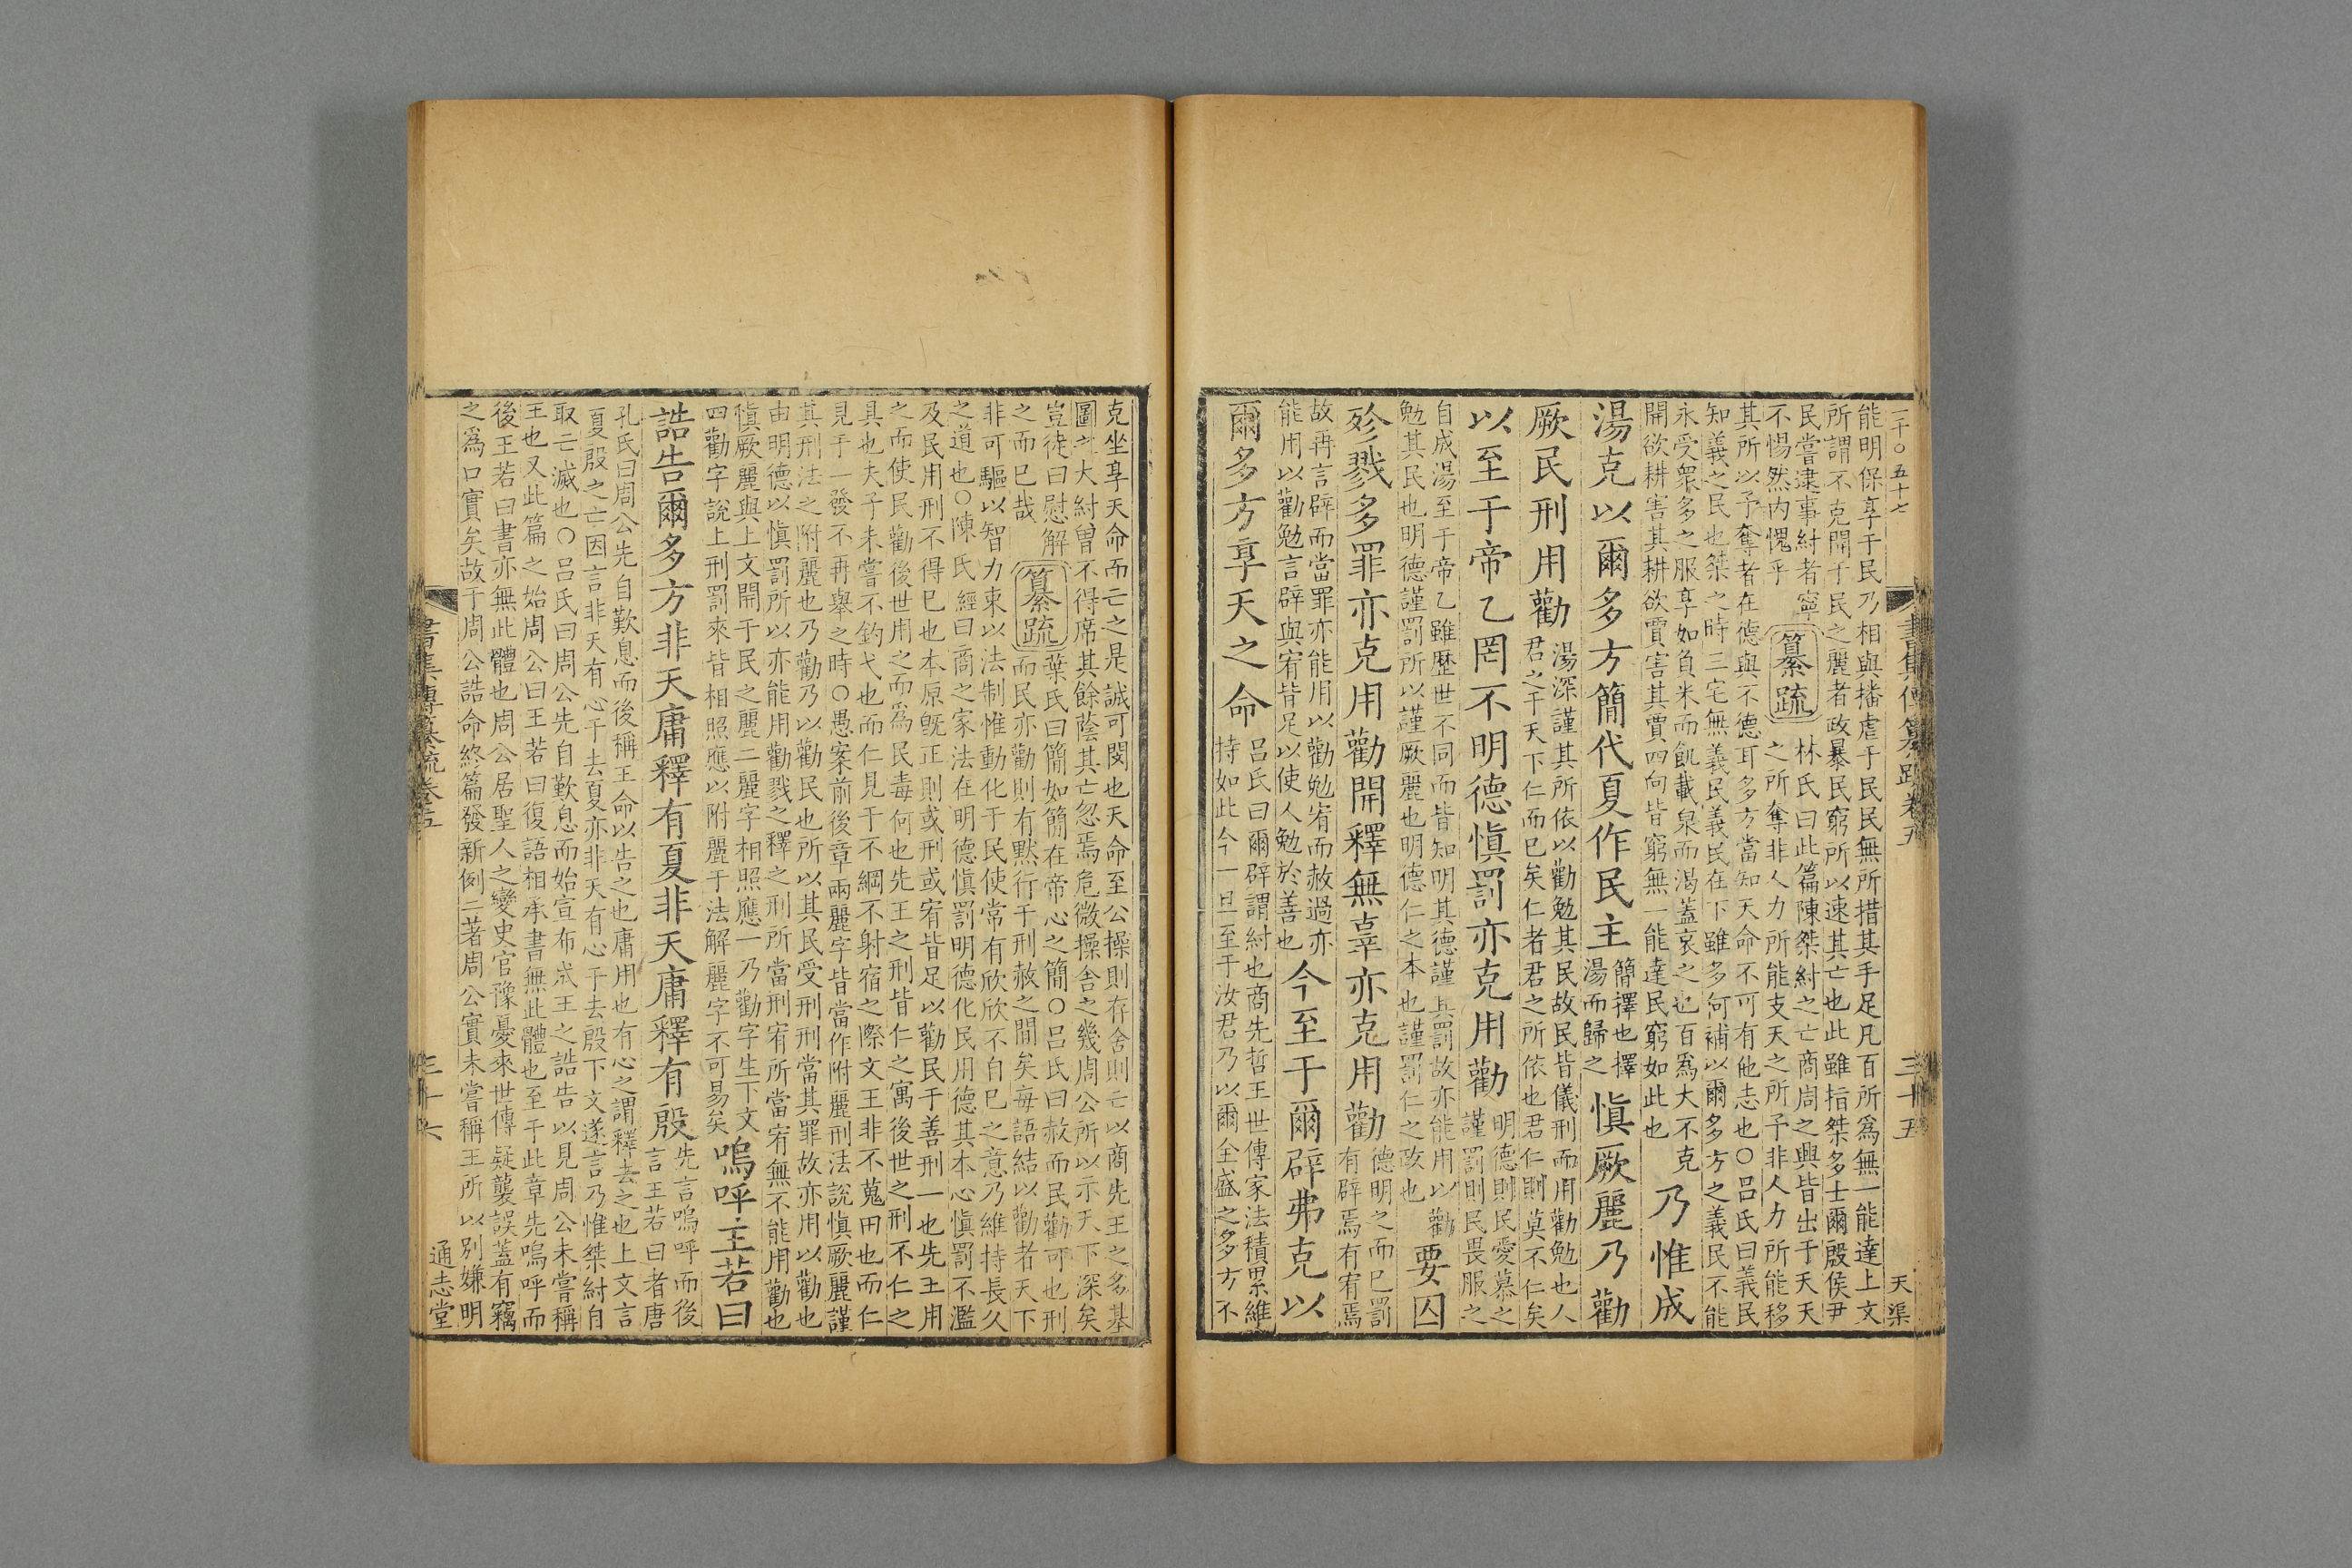 二千〇五十七
書集傳纂疏卷五
三十五
天渠
能明保享于民乃相與播虐于民民無所措其手足凡百所爲無一能達上文
所謂不克開于民之麗者政暴民窮所以速其亡也此雖指桀多士爾殷侯尹
民嘗逮事紂者寧
不惕然內愧乎
纂疏
林氏曰此篇陳桀紂之亡商周之興皆出于天天
之所奪非人力所能支天之所予非人力所能移
其所以予奪者在德與不德耳多方當知天命不可有他志也〇呂氏曰義民
知義之民也桀之時三宅無義民義民在下雖多何補以爾多方之義民不能
永受衆多之服享如負米而飢載泉而渴蓋哀之也百爲大不克
開欲耕害其耕欲賈害其賈四向皆窮無一能達民窮如此也
乃惟成
湯克以爾多方簡代夏作民主
簡擇也擇
湯而歸之
愼厥麗乃勸
厥民刑用勸
湯深謹其所依以勸勉其民故民皆儀刑而用勸勉也人
君之于天下仁而已矣仁者君之所依也君仁則莫不仁矣
以至于帝乙罔不明德愼罰亦克用勸
明德則民愛慕之
謹罰則民畏服之
自成湯至于帝乙雖歷世不同而皆知明其德謹其罰故亦能用以勸
勉其民也明德謹罰所以謹厥麗也明德仁之本也謹罰仁之政也
要囚
殄戮多罪亦克用勸開釋無辜亦克用勸
德明之而已罰
有辟焉有宥焉
故再言辟而當罪亦能用以勸勉宥而赦過亦
能用以勸勉言辟與宥皆足以使人勉於善也
今至于爾辟弗克以
爾多方享天之命
呂氏曰爾辟謂紂也商先哲王世傳家法積累維
持如此今一旦至于汝君乃以爾全盛之多方不
克坐享天命而亡之是誠可閔也天命至公操則存舍則亡以商先王之多基
圖之大紂曾不得席其餘蔭其亡忽焉危微操舍之幾周公所以示天下深矣
豈徒曰慰解
之而已哉
纂疏
葉氏曰簡如簡在帝心之簡〇呂氏曰赦而民勸可也刑
而民亦勸則有默行于刑赦之間矣每語結以勸者天下
非可驅以智力束以法制惟動化于民使常有欣欣不自已之意乃維持長久
之道也〇陳氏經曰商之家法在明德愼罰明德化民用德其本心愼罰不濫
及民用刑不得已也本原旣正則或刑或宥皆足以勸民于善刑一也先王用
之而使民勸後世用之而爲民毒何也先王之刑皆仁之寓後世之刑不仁之
具也夫子未嘗不釣弋也而仁見于不綱不射宿之際文王非不蒐田也而仁
見于一發不再舉之時〇愚案前後章兩麗字皆當作附麗刑法說愼厥麗謹
其刑法之附麗也乃勸乃以勸民也所以其民受刑刑當其罪故亦用以勸也
由明德以愼罰所以亦能用勸戮之釋之刑所當刑宥所當宥無不能用勸也
愼厥麗與上文開于民之麗二麗字相照應一乃勸字生下文
四勸字說上刑罰來皆相照應以附麗于法解麗字不可易矣
嗚呼王若曰
誥告爾多方非天庸釋有夏非天庸釋有殷
先言嗚呼而後
言王若曰者唐
孔氏曰周公先自歎息而後稱王命以告之也庸用也有心之謂釋去之也上文言
夏殷之亡因言非天有心于去夏亦非天有心于去殷下文遂言乃惟桀紂自
取亡滅也〇呂氏曰周公先自歎息而始宣布成王之誥告以見周公未嘗稱
王也又此篇之始周公曰王若曰復語相承書無此體也至于此章先嗚呼而
後王若曰書亦無此體也周公居聖人之變史官豫憂來世傳疑襲誤蓋有竊
之爲口實矣故于周公誥命終篇發新例二著周公實未嘗稱王所以別嫌明
書集傳纂疏卷五
三十六
通志堂